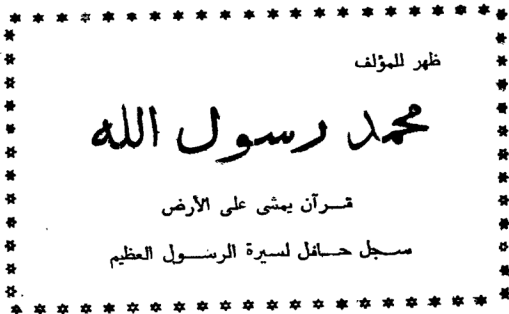 ظهر للمؤلف
محمد رسول الله
قـرآن يمشى على الأرض
سـجل حـافل لسيرة الرسـول العظيم